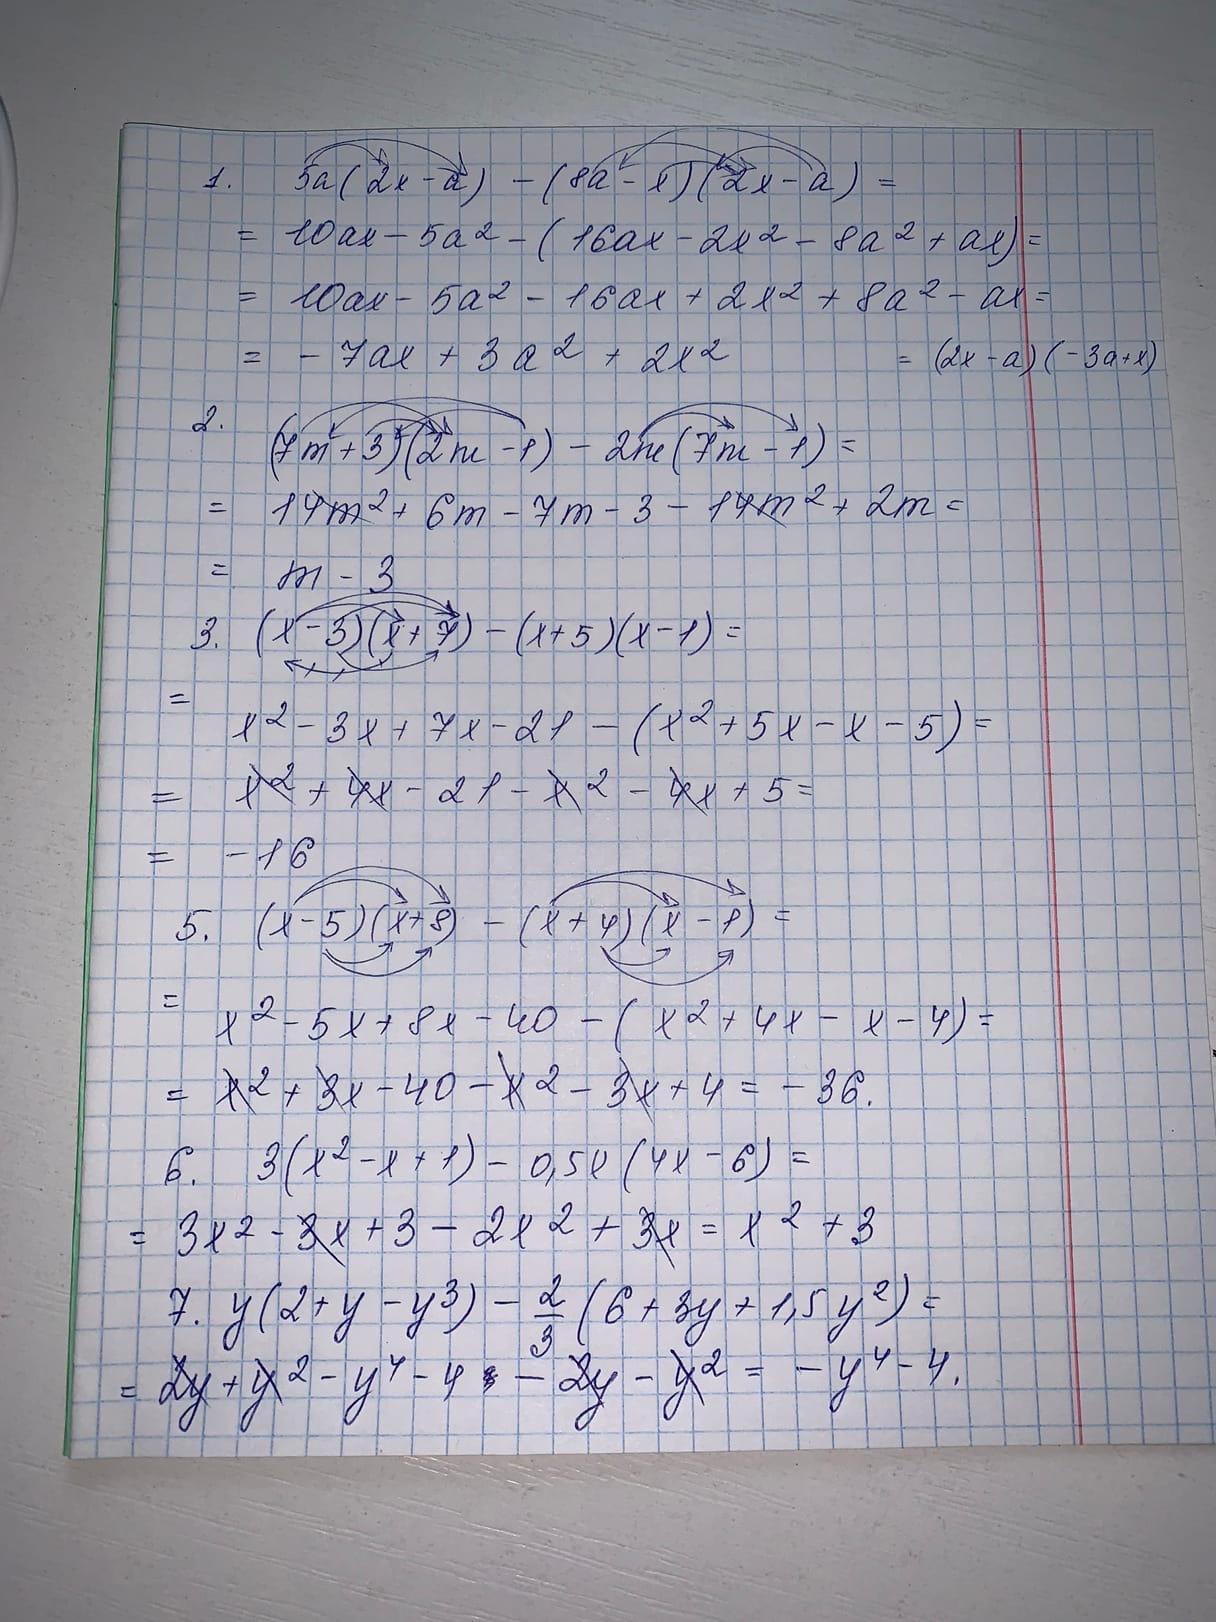 1. 5a(2x-a) - (8a-x)(2x-a) =
= 10ax - 5a² - (16ax - 2x² - 8a² + ax) =
= 10ax - 5a² - 16ax + 2x² + 8a² - ax =
= -7ax + 3a² + 2x² = (2x-a)(-3a+x)
2. (7m+3)(2m-1) - 2m(7m-1) =
= 14m² + 6m - 7m - 3 - 14m² + 2m =
= m - 3
3. (x-3)(x+7) - (x+5)(x-1) =
= x² - 3x + 7x - 21 - (x² + 5x - x - 5) =
= x² + 4x - 21 - x² - 4x + 5 =
= -16
5. (x-5)(x+8) - (x+4)(x-1) =
= x² - 5x + 8x - 40 - (x² + 4x - x - 4) =
= x² + 3x - 40 - x² - 3x + 4 = -36.
6. 3(x² - x + 1) - 0,5x(4x - 6) =
= 3x² - 3x + 3 - 2x² + 3x = x² + 3
7. y(2 + y - y³) - 2/3 (6 + 3y + 1,5y²) =
= 2y + y² - y⁴ - 4 - 2y - y² = -y⁴ - 4.